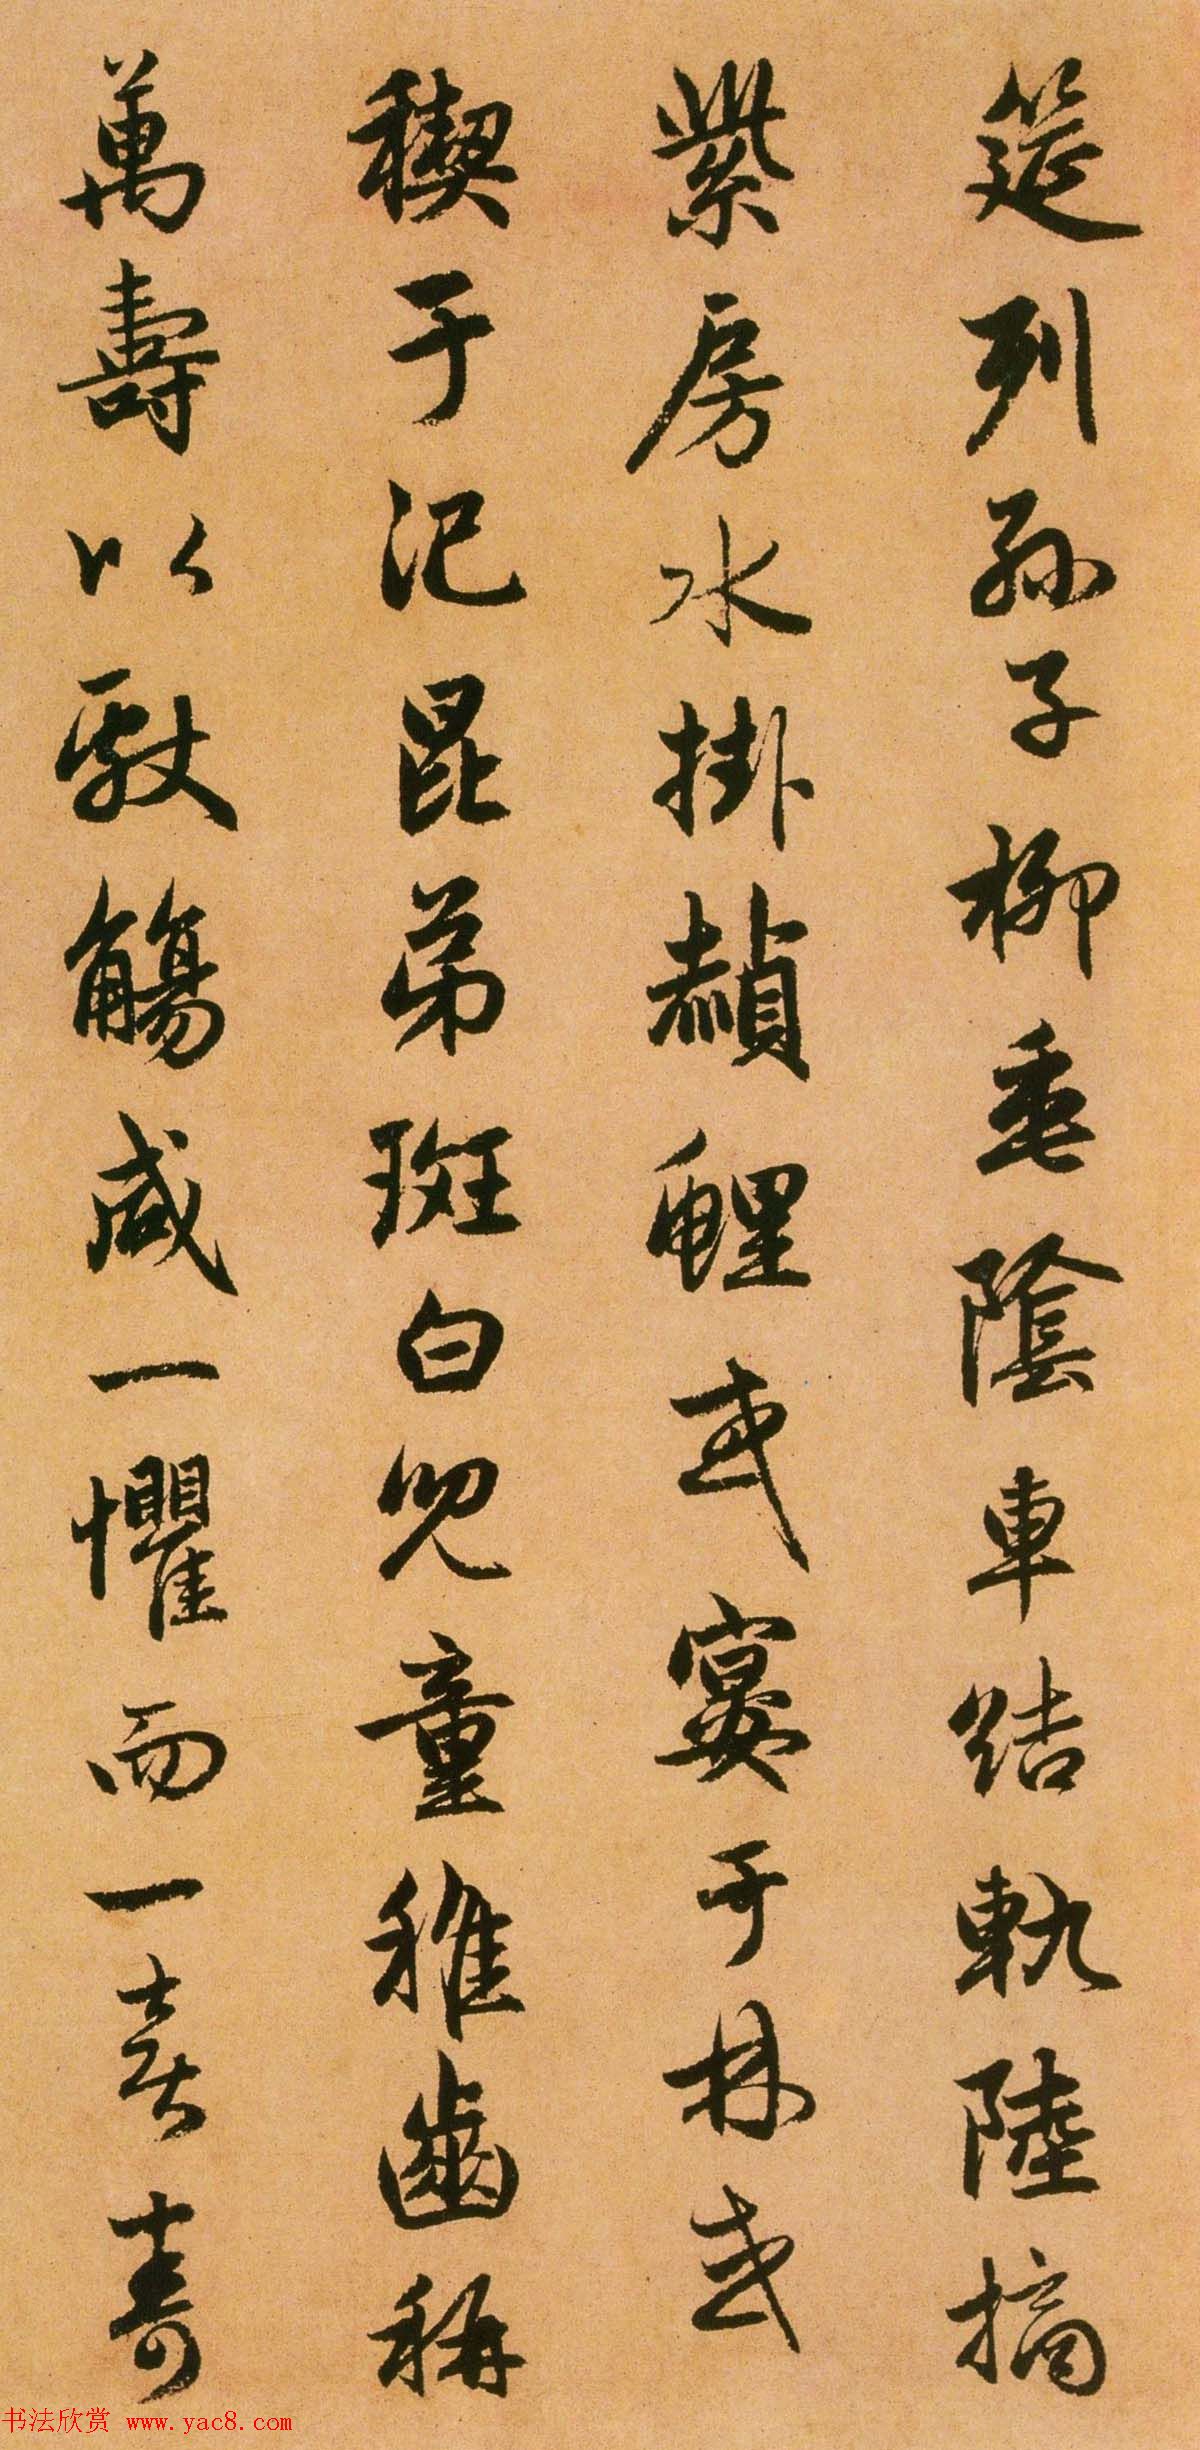 筵列孫子柳垂陰車結軌陸摘
紫房水掛赬鯉或宴于林或
禊于汜昆弟斑白兒童稚齒稱
萬壽以獻觴咸一懼而一喜壽
书法欣赏 www.yac8.com